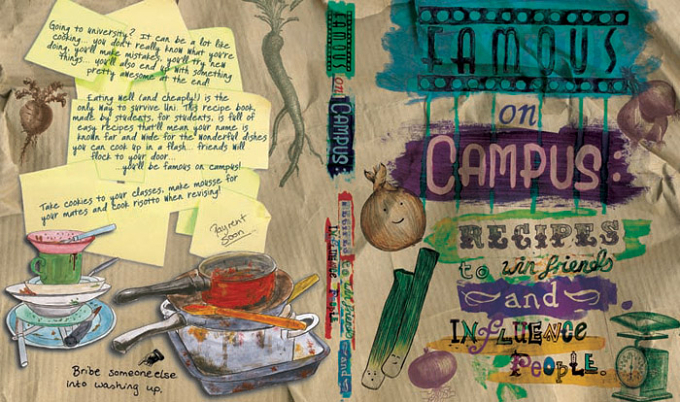 Going to university? It can be a lot like
cooking... you don't really know what you're
doing, you'll make mistakes, you'll try new
things... you'll also end up with something
pretty awesome at the end!
Eating well (and cheaply!) is the
only way to survive Uni. This recipe book,
made by students, for students, is full of
easy recipes that'll mean your name is
known far and wide for the wonderful dishes
you can cook up in a flash... friends will
flock to your door...
...you'll be famous on campus!
Take cookies to your classes, make mousse for
your mates and cook risotto when revising!
Pay rent
soon
Bribe someone else
into washing up.
FAMOUS
on
CAMPUS:
RECIPES
to win friends
and
INFLUENCE
PEOPLE
FAMOUS
on
CAMPUS:
RECIPES
to win friends
and
INFLUENCE
PEOPLE.